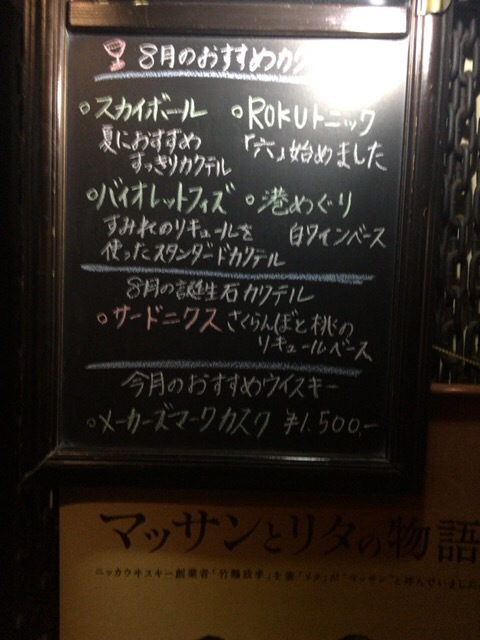 8月のおすすめカク
○スカイボール
夏におすすめ
すっきりカクテル
○ROKUトニック
「六」始めました
○バイオレットフィズ
すみれのリキュールを
使ったスタンダードカクテル
○港めぐり
白ワインベース
8月の誕生石カクテル
○サードニクス さくらんぼと桃の
リキュールベース
今月のおすすめウイスキー
○メーカーズマークカスク ¥1.500.-
マッサンとリタの物語
ニッカウヰスキー創業者「竹鶴政孝」を妻「リタ」が“マッサン”と呼んでいました